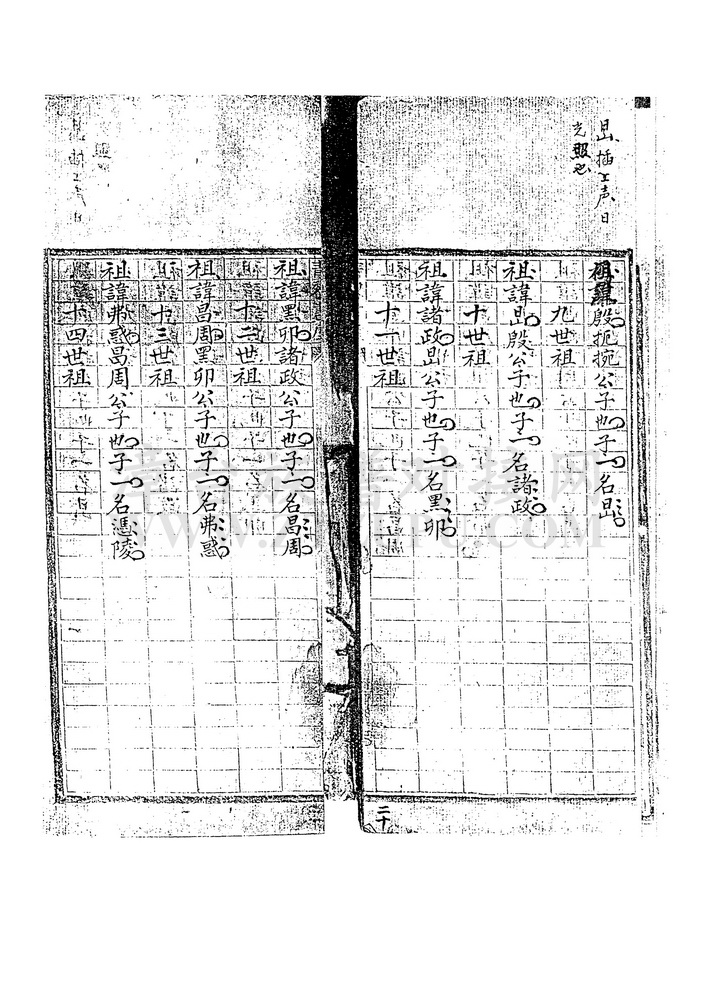 昷插工声日
光照也
祖諱殷扼捥公子也子一名昷
九世祖
祖諱昷殷公子也子一名諸政
十世祖
祖諱諸政昷公子也子一名黑卯
十一世祖
二十
祖諱黑卯諸政公子也子一名昌周
十二世祖
祖諱昌周黑卯公子也子一名弗惑
十三世祖
祖諱弗惑昌周公子也子一名憑陵
十四世祖